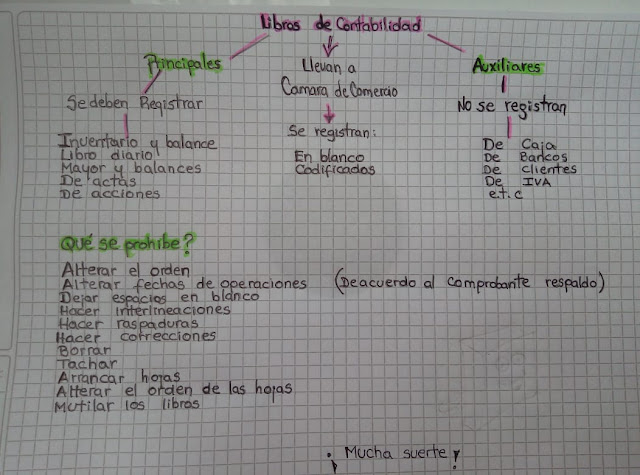 Libros de Contabilidad
Principales
Se deben Registrar
Inventario y balance
Libro diario
Mayor y balances
De actas
De acciones
Llevan a
Camara de Comercio
Se registran:
En blanco
Codificados
Auxiliares
No se registran
De Caja
De Bancos
De clientes
De IVA
e.t.c
Qué se prohibe?
Alterar el orden
Alterar fechas de operaciones (Deacuerdo al comprobante respaldo)
Dejar espacios en blanco
Hacer interlineaciones
Hacer raspaduras
Hacer correcciones
Borrar
Tachar
Arrancar hojas
Alterar el orden de las hojas
Mutilar los libros
¡ Mucha suerte !